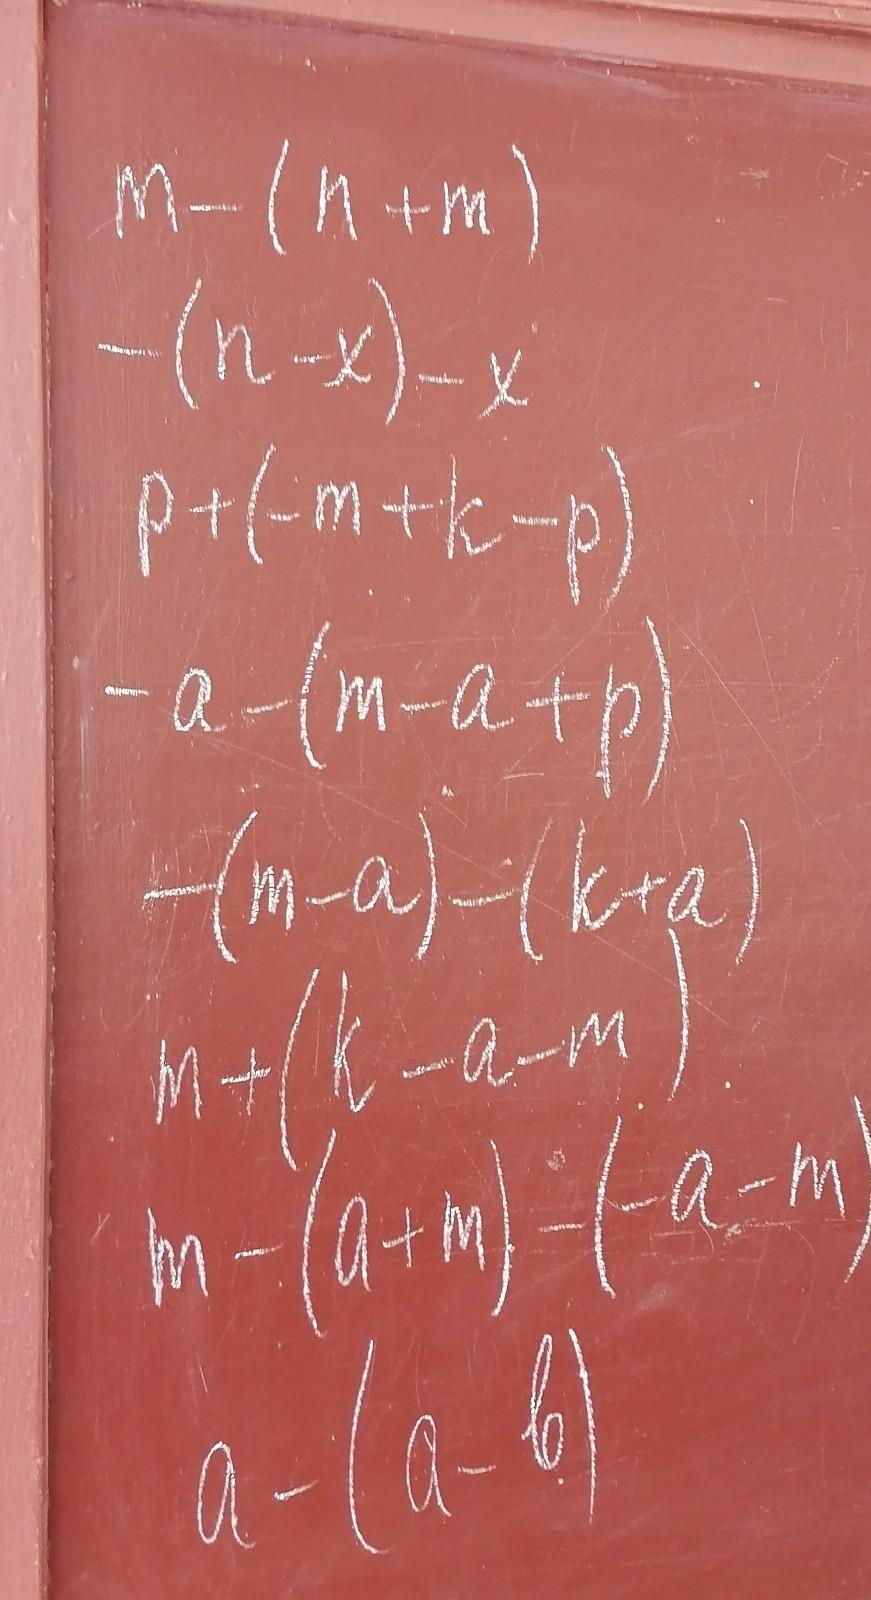 m-(n+m)
-(n-x)-x
p+(-m+k-p)
-a-(m-a+p)
-(m-a)-(k+a)
m+(k-a-m)
m-(a+m)-(-a-m)
a-(a-b)